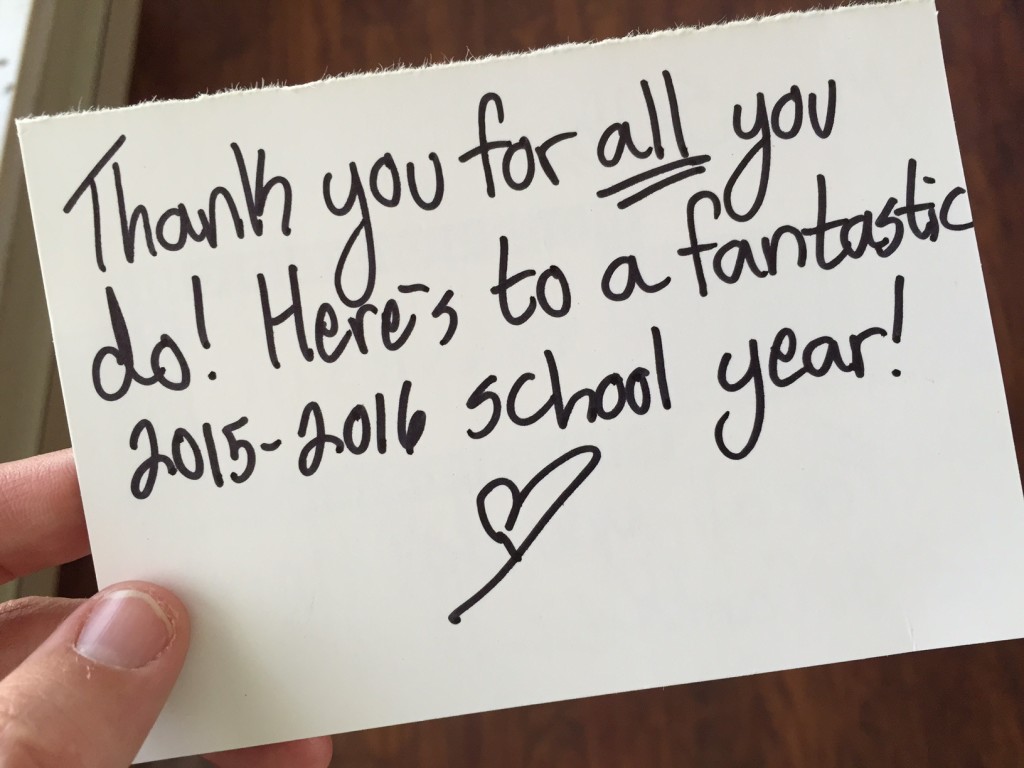 Thank you for all you
do! Here's to a fantastic
2015-2016 school year!